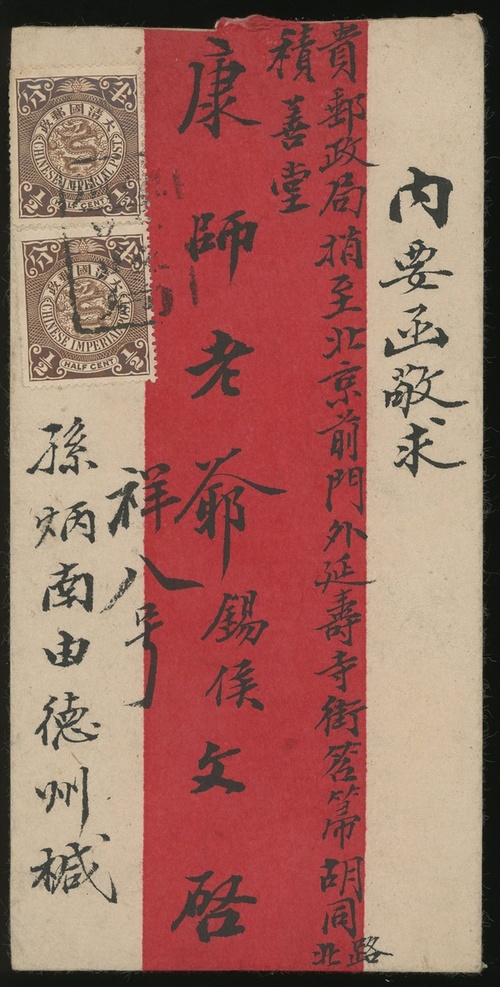 内要函敬求
貴郵政局捎至北京前門外延壽寺街笤箒胡同路北
積善堂
康師老爺錫侯文啓
祥八号
孫炳南由德州椷
半分
大清國郵政
CHINESE IMPERIAL POST
½ ½
HALF CENT
半分
大清國郵政
CHINESE IMPERIAL POST
½ ½
HALF CENT